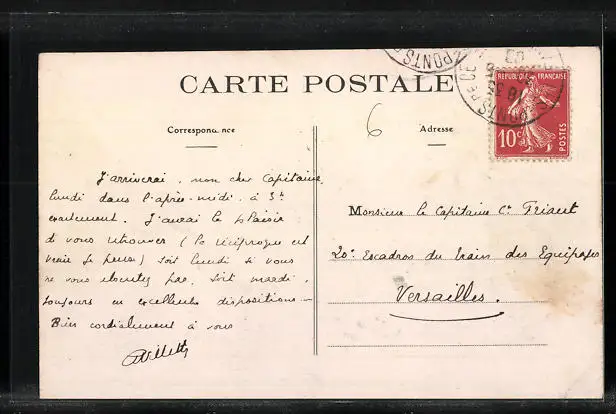 CARTE POSTALE
Correspondance
Adresse
6
REPUBLIQUE FRANÇAISE
10c
POSTES
PONTS DE CE
J'arriverai, mon cher Capitaine,
lundi dans l'après-midi, à 3h
exactement. J'aurai le plaisir
de vous retrouver (la réciproque est
vraie je pense) soit lundi si vous
ne vous absentez pas, soit mardi,
toujours en excellentes dispositions —
Bien cordialement à vous
Monsieur le Capitaine Ct Friant
20e Escadron du train des Equipages
Versailles.